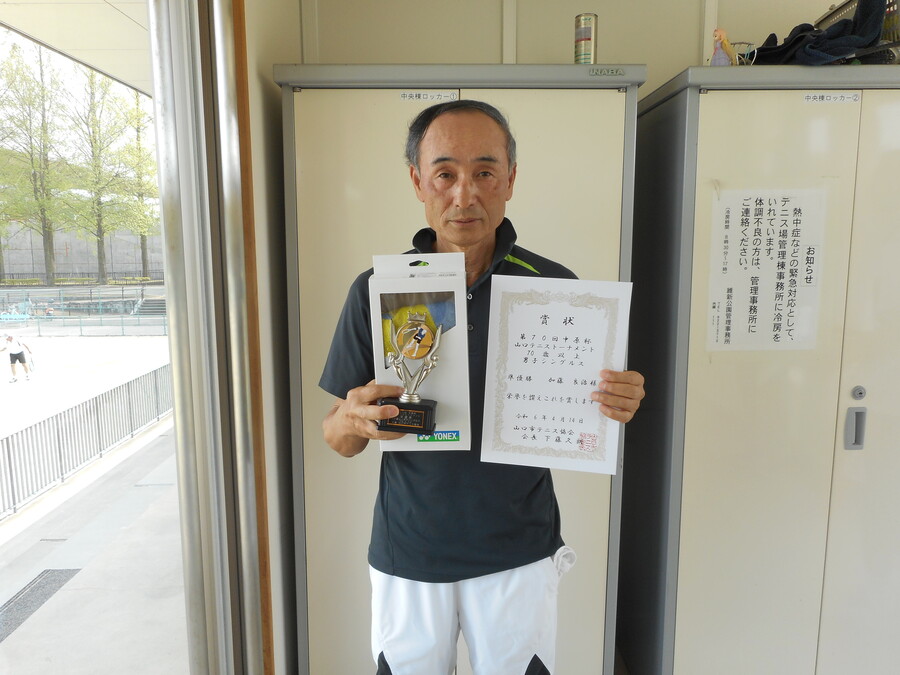 INABA
中央棟ロッカー①
中央棟ロッカー②
YONEX
賞状
第70回中原杯
山口テニストーナメント
70歳以上
男子シングルス
準優勝 加藤 友治様
栄誉を讃えこれを賞します
令和6年4月18日
山口市テニス協会
会長
お知らせ
熱中症などの緊急対応として、
テニス場管理棟事務所に冷房を
いれています。
体調不良の方は、管理事務所に
ご連絡ください。
維新公園管理事務所